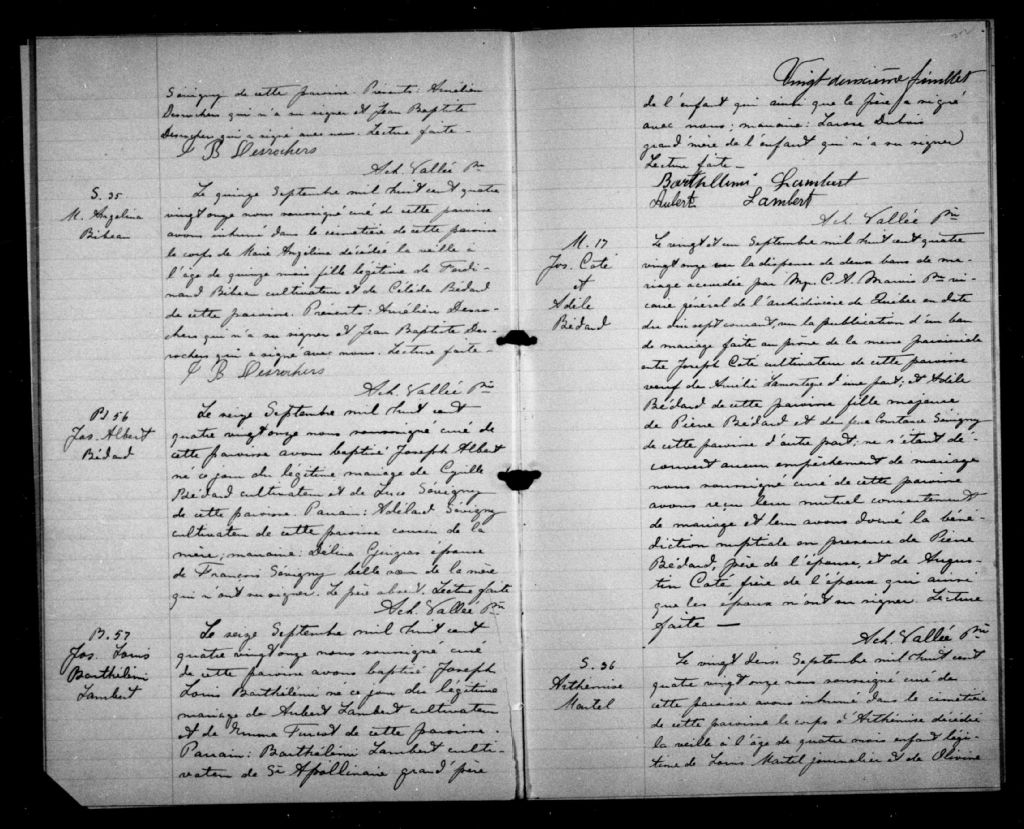 Sévigny de cette paroisse. Présents: Aurélien
Desrochers qui n'a su signer et Jean Baptiste
Desrochers qui a signé avec nous. Lecture faite -
J B Desrochers
Ach. Vallée Ptre
S. 35
M. Angelina
Bibeau
Le quinze Septembre mil huit cent quatre
vingt onze nous soussigné curé de cette paroisse
avons inhumé dans le cimetière de cette paroisse
le corps de Marie Angéline décédée la veille à
l'âge de quinze mois fille légitime de Ferdi-
nand Bibeau cultivateur et de Célida Bédard
de cette paroisse. Présents: Aurélien Desro-
chers qui n'a su signer et Jean Baptiste Des-
rochers qui a signé avec nous. Lecture faite -
J B Desrochers
Ach. Vallée Ptre
B 56
Jos. Albert
Bédard
Le seize Septembre mil huit cent
quatre vingt onze nous soussigné curé de
cette paroisse avons baptisé Joseph Albert
né ce jour du légitime mariage de Cyrille
Bédard cultivateur et de Luce Sévigny
de cette paroisse. Parrain: Adélard Sévigny
cultivateur de cette paroisse cousin de la
mère; marraine: Délina Gingras épouse
de François Sévigny belle soeur de la mère
qui n'ont su signer. Le père absent. Lecture faite
Ach. Vallée Ptre
B. 57
Jos. Louis
Barthélémi
Lambert
Le seize Septembre mil huit cent
quatre vingt onze nous soussigné curé
de cette paroisse avons baptisé Joseph
Louis Barthélémi né ce jour du légitime
mariage de Aubert Lambert cultivateur
et de Emma de cette paroisse.
Parrain: Barthélémi Lambert culti-
vateur de St Apollinaire grand'père
Vingt deuxième feuillet
de l'enfant qui ainsi que le père a signé
avec nous; marraine: Dubois
grand'mère de l'enfant qui n'a su signer
Lecture faite -
Barthellimi Lambert
Aubert Lambert
Ach. Vallée Ptre
M. 17
Jos. Coté
et
Adèle
Bédard
Le vingt et un Septembre mil huit cent quatre
vingt onze vu la dispense de deux bans de ma-
riage accordée par Mgr. C. A. Marois Ptre vi-
caire général de l'archidiocèse de Québec en date
du dix sept courant, vu la publication d'un ban
de mariage faite au prône de la messe paroissiale
entre Joseph Coté cultivateur de cette paroisse
veuf de Amélie Lamontagne d'une part; et Adèle
Bédard de cette paroisse fille majeure
de Pierre Bédard et de feue Constance Sévigny
de cette paroisse d'autre part; ne s'étant dé-
couvert aucun empêchement de mariage
nous soussigné curé de cette paroisse
avons reçu leur mutuel consentement
de mariage et leur avons donné la béné-
diction nuptiale en présence de Pierre
Bédard, père de l'épouse, et de Augus-
tin Coté frère de l'époux qui ainsi
que les époux n'ont su signer. Lecture
faite -
Ach. Vallée Ptre
S. 36
Arthémise
Martel
Le vingt deux Septembre mil huit cent
quatre vingt onze nous soussigné curé de
cette paroisse avons inhumé dans le cimetière
de cette paroisse le corps d'Arthémise décédée
la veille à l'âge de quatre mois enfant légi-
time de Louis Martel journalier et de Olivine